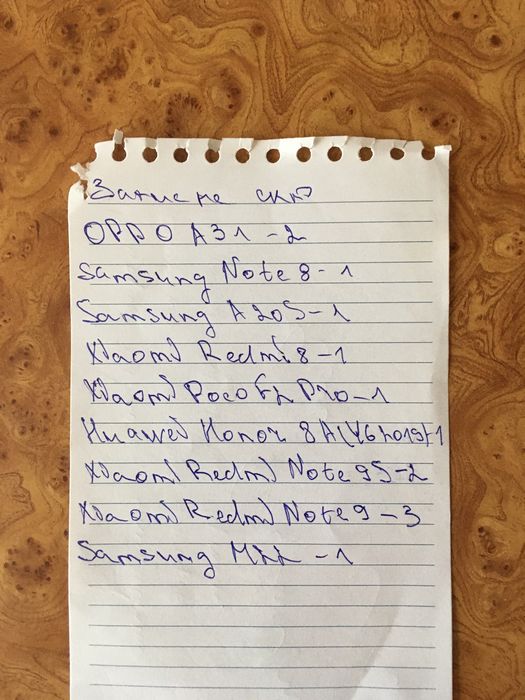 OPPO A31-2
Samsung Note 8-1
Samsung A20S-1
Xiaomi Redmi 8-1
Xiaomi Poco F2 Pro-1
Huawei Honor 8A(Y6 2019)-1
Xiaomi Redmi Note 9S-2
Xiaomi Redmi Note 9-3
Samsung M21-1